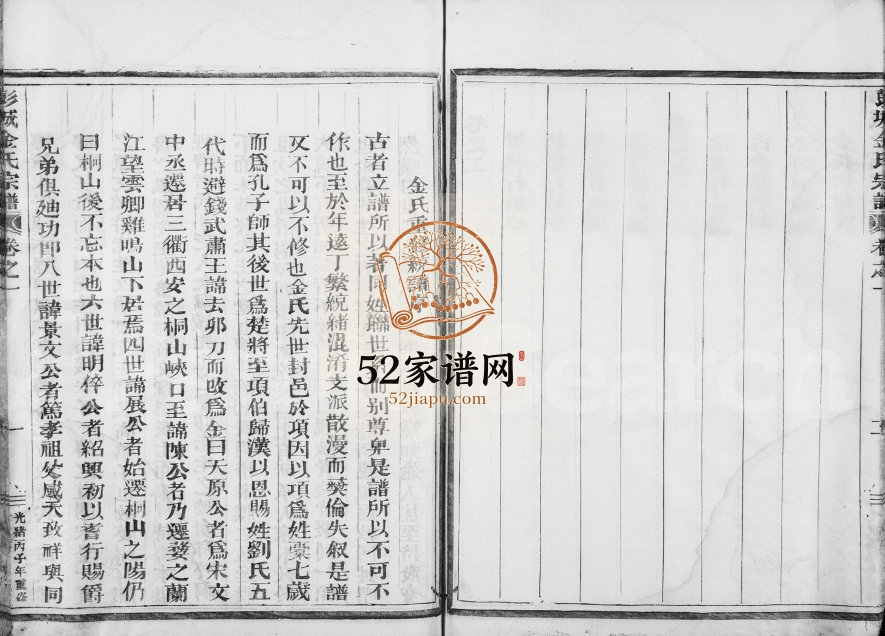 彭城金氏宗譜 卷之一
金氏重修統譜序
古者立譜所以著同姓聯世系而别尊卑是譜所以不可不
作也至於年遠丁繁統緒混淆支派散漫而彛倫失叙是譜
又不可以不修也金氏先世封邑於項因以項爲姓橐七歲
而爲孔子師其後世爲楚將至項伯歸漢以恩賜姓劉氏五
代時避錢武肅王諱去卯刀而改爲金曰天原公者爲宋文
中丞遷居三衢西安之桐山峽口至諱陳公者乃遷婺之蘭
江望雲卿雞鳴山下居焉四世諱展公者始遷桐山之陽仍
曰桐山後不忘本也六世諱明倅公者紹興初以耆行賜爵
兄弟俱廸功郎八世諱景文公者篤孝祖父感天致祥與同
彭城金氏宗譜 卷之一
一
光緒丙子年重修
52家谱网
52jiapu.com